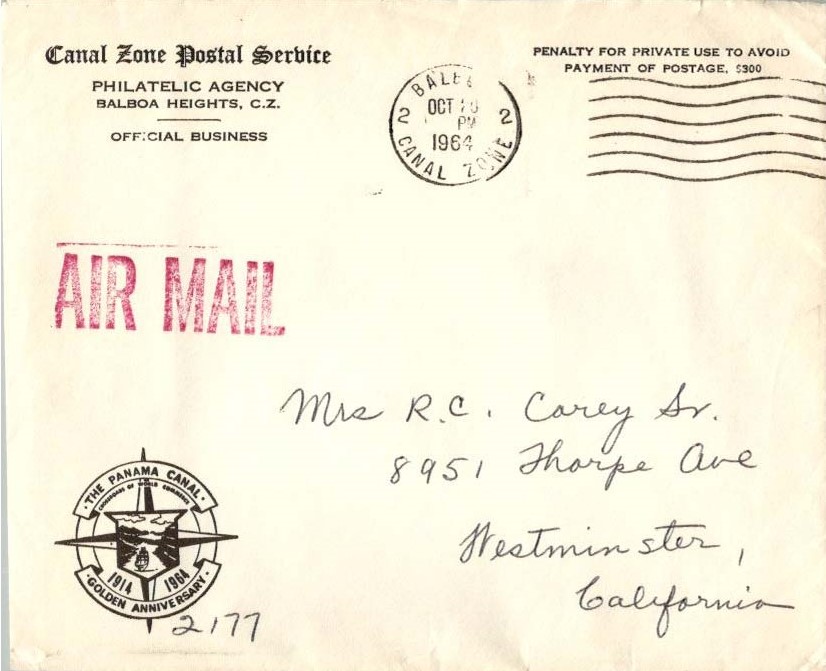 Canal Zone Postal Service
PHILATELIC AGENCY
BALBOA HEIGHTS, C.Z.
OFFICIAL BUSINESS
PENALTY FOR PRIVATE USE TO AVOID
PAYMENT OF POSTAGE, $300
2 2
OCT
PM
1964
CANAL ZONE
AIR MAIL
Mrs R.C. Carey Sr.
8951 Thorpe Ave
Westminster,
California
THE PANAMA CANAL
CROSSROADS OF WORLD COMMERCE
1914 1964
GOLDEN ANNIVERSARY
2177